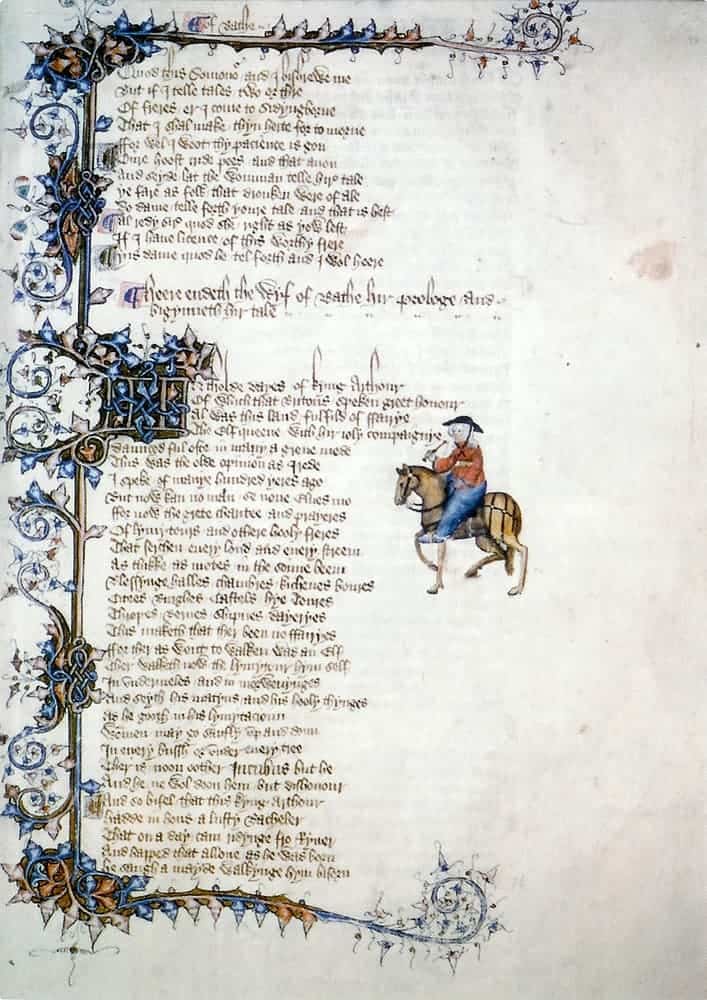 Of Bathe
Quod this Somono and I bishrewe me
But if I telle tales two or thre
Of freres er I come to Sidyngborne
That I shal make thyn herte for to morne
ffor wel I woot thy pacience is gon
Oure hoost cride pees and that anon
And seyde lat the womman telle hire tale
ye fare as folk that dronken were of ale
Do dame telle forth youre tale and that is best
Al redy sire quod she right as yow lest
If I have licence of this worthy frere
yis dame quod he tel forth and I wol heere
Heere endeth the Wyf of Bathe hir prologe And
bigynneth hir tale
tholde dayes of kyng Arthour
Of which that Britons speken greet honour
Al was this land fulfild of ffairye
The Elf queene with hir ioly compaignye
Daunced ful ofte in many a grene mede
This was the olde opinion as I rede
I speke of manye hundred yeres ago
But now kan no man se none Elves mo
ffor now the grete charitee and prayeres
Of lymytours and othere hooly freres
That serchen every lond and every streem
As thikke as motes in the sonne beem
Blessynge halles chambres kichenes boures
Citees Burghes Castels hye Toures
Thropes Bernes Shipnes dayeryes
This maketh that ther been no ffairyes
ffor ther as wont to walken was an Elf
Ther walketh now the lymytour hym self
In undermeles and in morwenynges
And seyth his matyns and his hooly thynges
As he gooth in his lymytacioun
Wommen may go saufly up and doun
In every bussh or under every tree
Ther is noon oother Incubus but he
And he ne wol doon hem but dishonour
And so bifel that this kyng Arthour
hadde in hous a lusty Bacheler
That on a day cam ridynge fro Ryver
And happed that allone as he was born
he saugh a mayde walkynge hym biforn